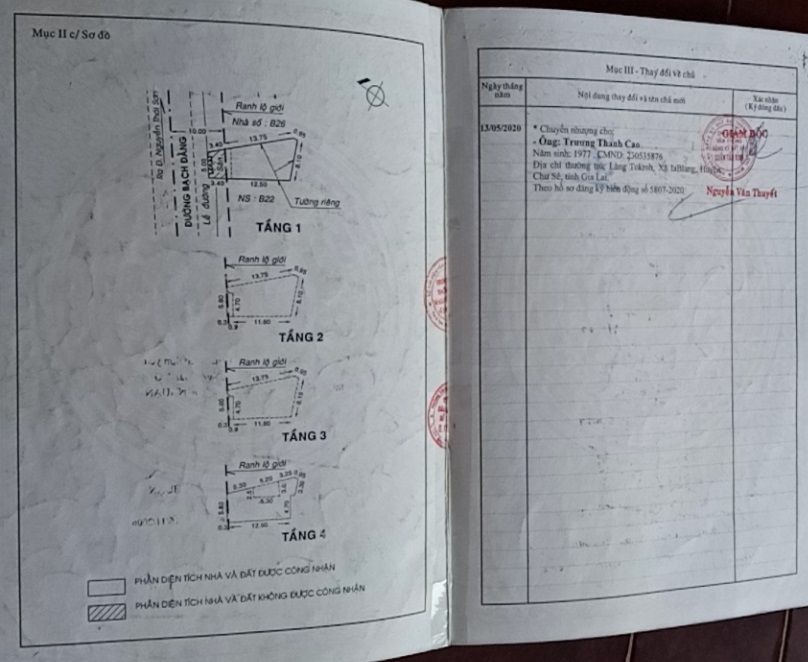 Mục II c/ Sơ đồ
Ra Đ. Nguyễn Thái Sơn
ĐƯỜNG BẠCH ĐẰNG
Lề đường
Sân
Ranh lộ giới
Nhà số : B26
10.00
13.75
0.85
3.40
5.00
6.10
3.40
12.50
NS : B22
Tường riêng
TẦNG 1
Ranh lộ giới
13.75
0.85
5.80
4.70
6.10
0.3
0.9
11.60
TẦNG 2
Ranh lộ giới
13.75
4.70
6.10
0.3
0.9
11.60
TẦNG 3
Ranh lộ giới
5.30
5.20
3.25
0.85
5.80
5.30
3.30
4.70
0.3
12.50
TẦNG 4
PHẦN DIỆN TÍCH NHÀ VÀ ĐẤT ĐƯỢC CÔNG NHẬN
PHẦN DIỆN TÍCH NHÀ VÀ ĐẤT KHÔNG ĐƯỢC CÔNG NHẬN
Mục III - Thay đổi về chủ
Ngày tháng năm
Nội dung thay đổi và tên chủ mới
Xác nhận
( Ký đóng dấu )
13/05/2020
* Chuyển nhượng cho:
- Ông: Trương Thanh Cao
Năm sinh: 1977 CMND: 230535876
Địa chỉ thường trú: Làng Tokroh, Xã IaBlang, Huyện
Chư Sê, tỉnh Gia Lai.
Theo hồ sơ đăng ký biến động số 5807-2020
GIÁM ĐỐC
Nguyễn Văn Thuyết